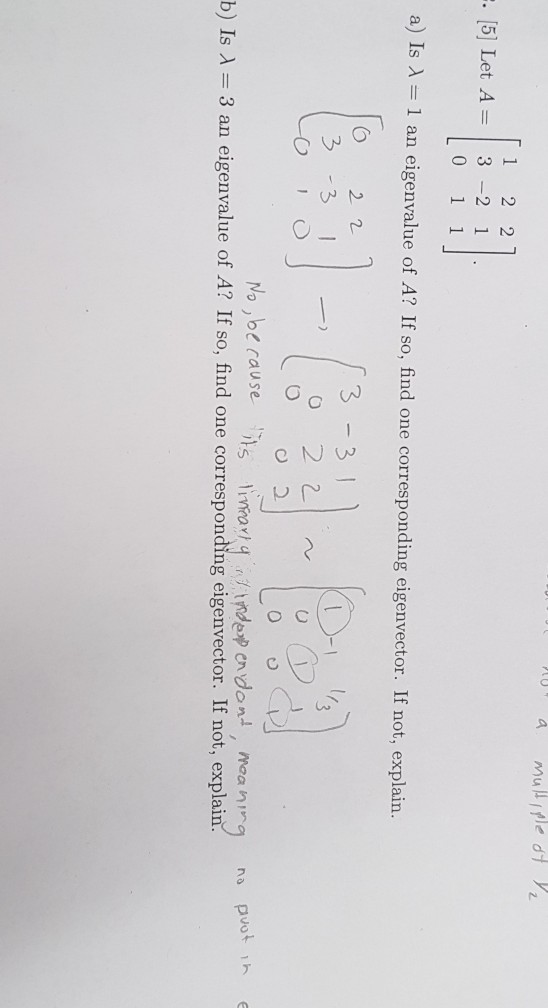 a multiple of V2
. [5] Let A = [ 1 2 2
3 -2 1
0 1 1 ].
a) Is λ = 1 an eigenvalue of A? If so, find one corresponding eigenvector. If not, explain.
[ 0 2 2
3 -3 1
0 1 0 ] → [ 3 -3 1
0 2 2
0 0 2 ] ~ [ 1 -1 1/3
0 1 1
0 0 1 ]
No, because its linearly independent, meaning no pivot in
b) Is λ = 3 an eigenvalue of A? If so, find one corresponding eigenvector. If not, explain.